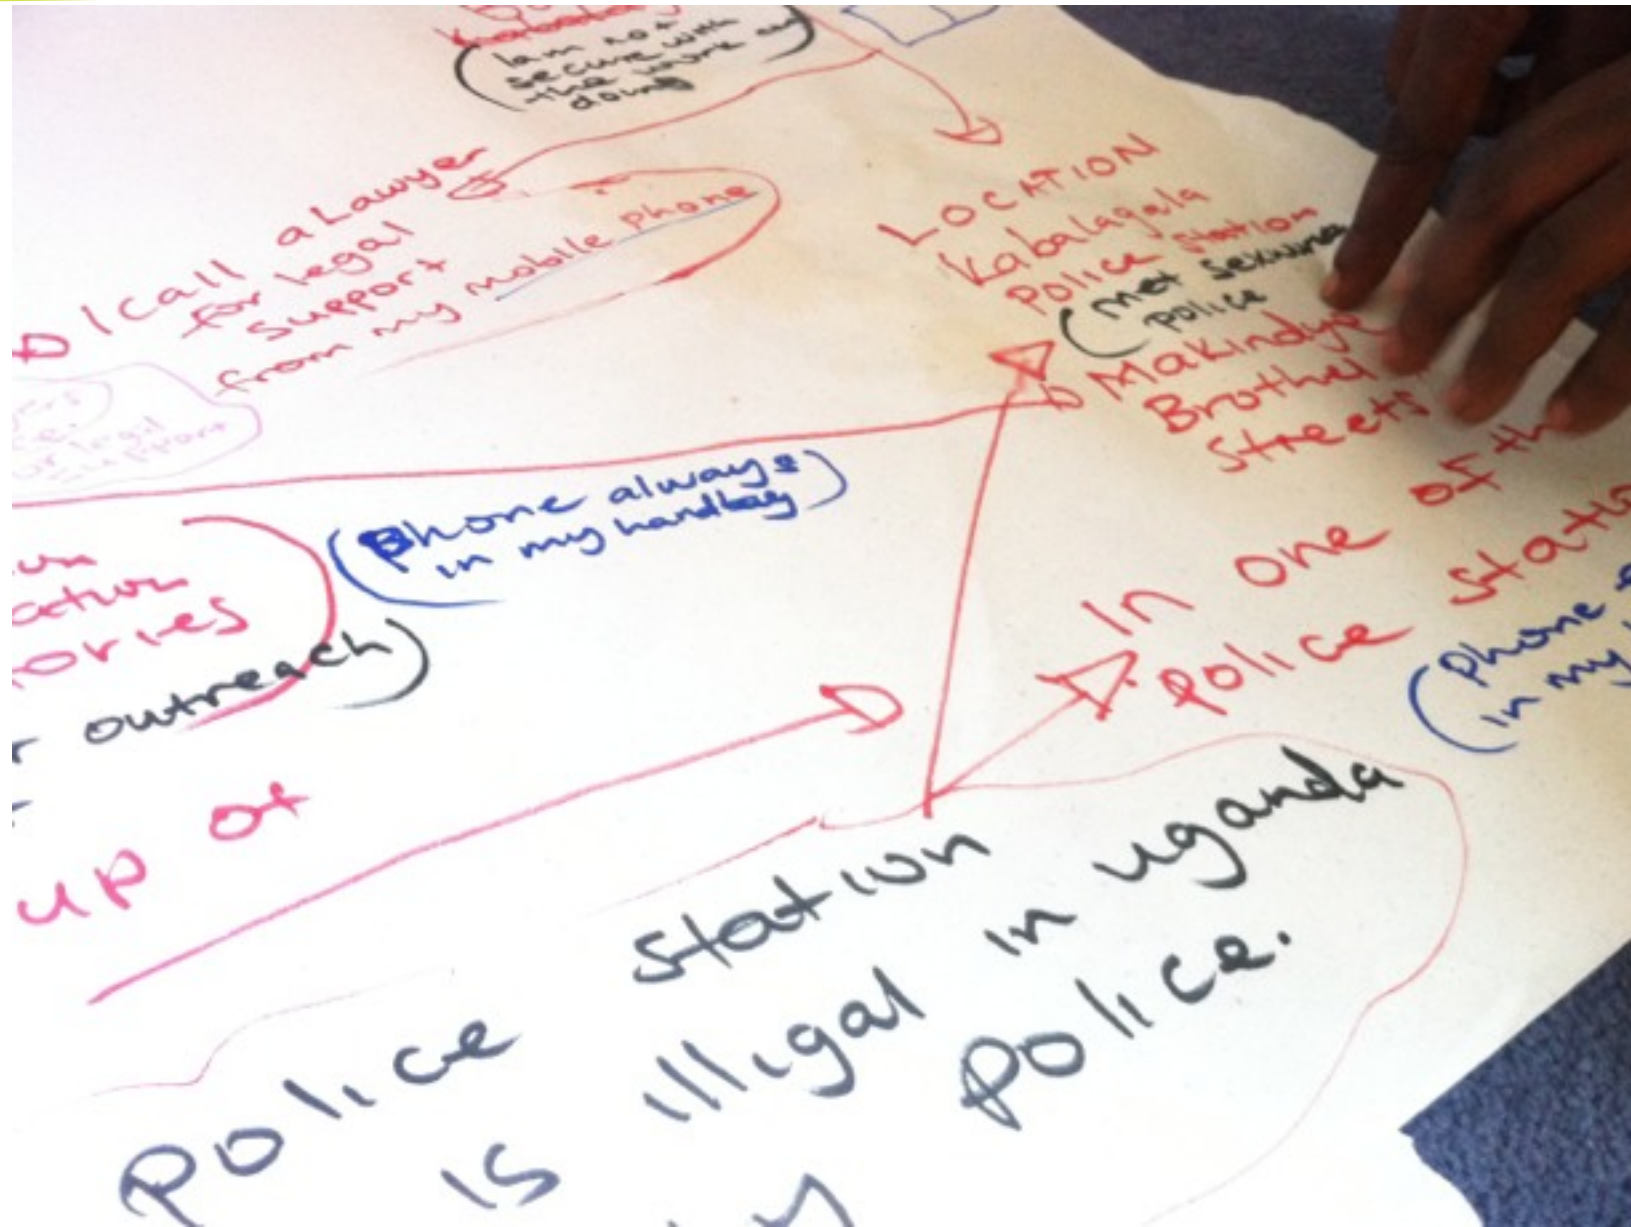 (Iam not
secure with
the work am
doing
I call a Lawyer
for legal
support
from my mobile phone
LOCATION
Kabalagala
Police Station
(met
police
Makindye
Brothel
Streets
or legal
support
(Phone always
in my handbag)
outreach)
up of
In one of th
police statio
(Phone
in my
police station
is illigal in uganda
police.